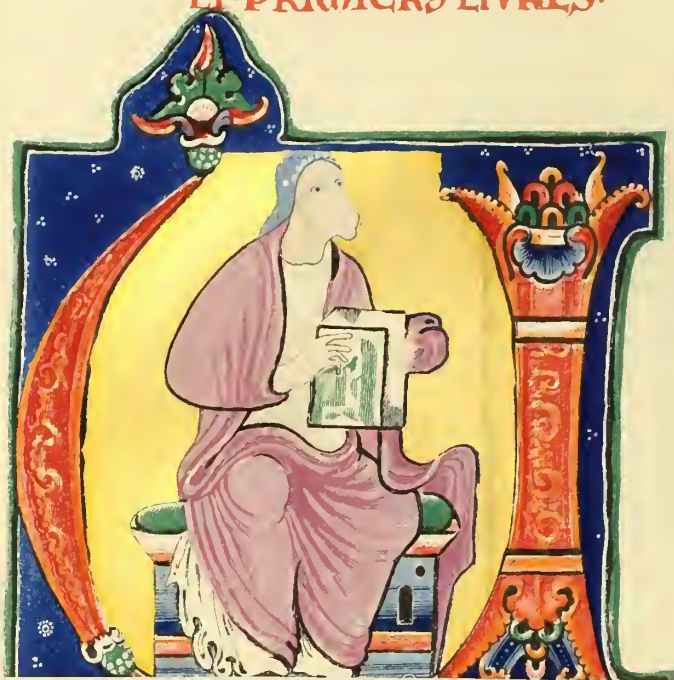 LI PRIMIERS LIVRES·